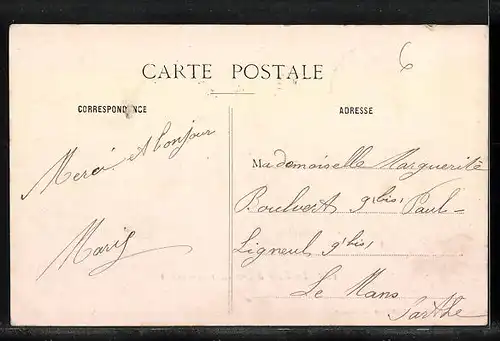 6
CARTE POSTALE
CORRESPONDANCE
ADRESSE
Merci et bonjour
Mademoiselle Marguerite
Boulvert 9 (bis) Paul-
Marie
Ligneul 9 (bis)
Le Mans
Sarthe